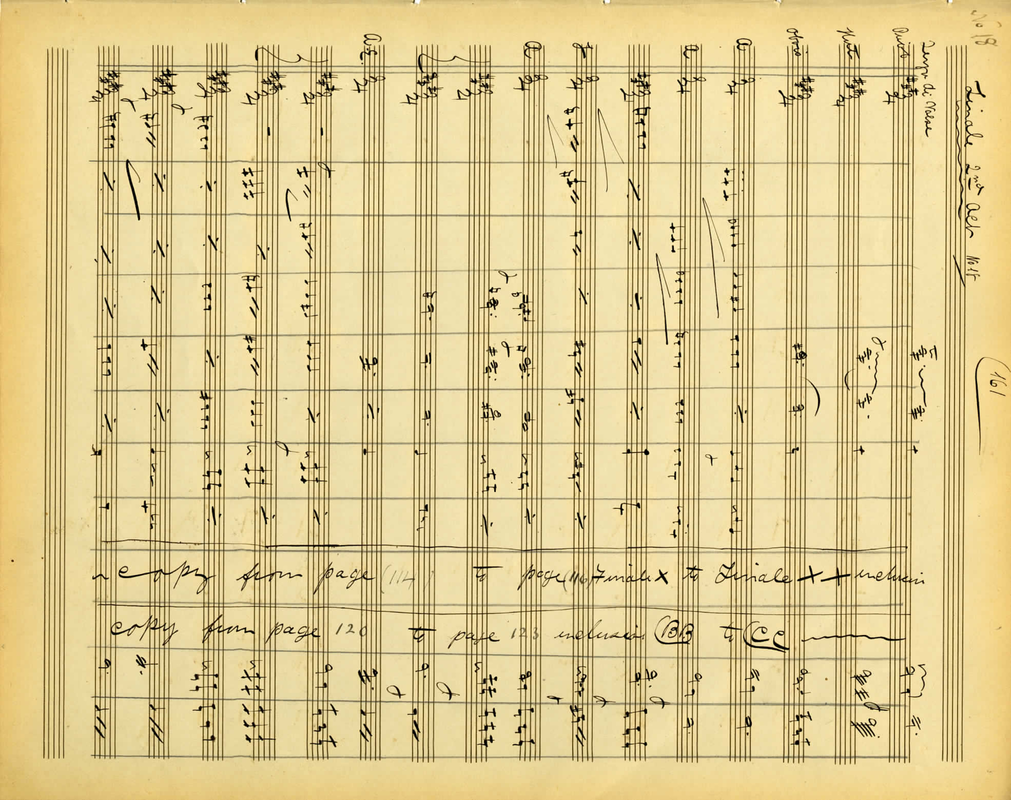 No 18
Finale 2nd Act
(161
Tempo di Valse
Flute
Oboe
copy from page (114 to page (116) Finale X to Finale X X inclusiv
copy from page 120 to page 123 inclusiv (BB to (CC